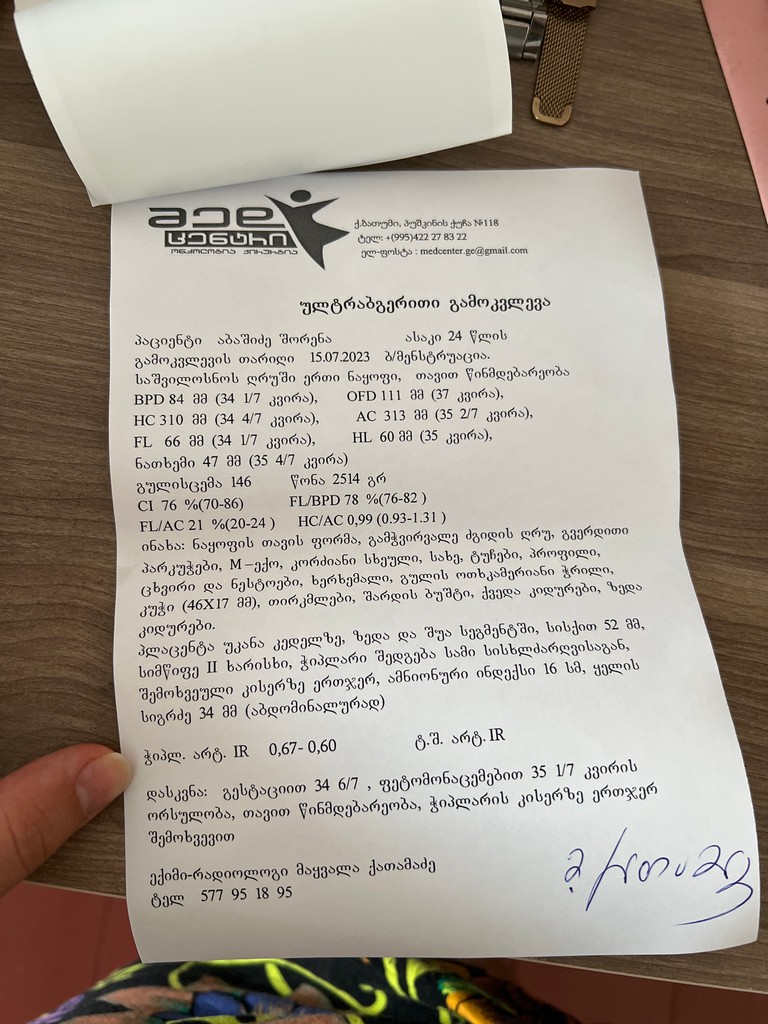 მედ
ცენტრი
ონკოლოგია ქირურგია
ქ.ბათუმი, პუშკინის ქუჩა №118
ტელ: +(995)422 27 83 22
ელ-ფოსტა : medcenter.ge@gmail.com
ულტრაბგერითი გამოკვლევა
პაციენტი აბაშიძე შორენა ასაკი 24 წლის
გამოკვლევის თარიღი 15.07.2023 ბ/მენსტრუაცია.
საშვილოსნოს ღრუში ერთი ნაყოფი, თავით წინმდებარეობა
BPD 84 მმ (34 1/7 კვირა), OFD 111 მმ (37 კვირა),
HC 310 მმ (34 4/7 კვირა), AC 313 მმ (35 2/7 კვირა),
FL 66 მმ (34 1/7 კვირა), HL 60 მმ (35 კვირა),
ნათხემი 47 მმ (35 4/7 კვირა)
გულისცემა 146 წონა 2514 გრ
CI 76 %(70-86) FL/BPD 78 %(76-82 )
FL/AC 21 %(20-24 ) HC/AC 0,99 (0.93-1.31 )
ინახა: ნაყოფის თავის ფორმა, გამჭვირვალე ძგიდის ღრუ, გვერდითი
პარკუჭები, M –ექო, კორძიანი სხეული, სახე, ტუჩები, პროფილი,
ცხვირი და ნესტოები, ხერხემალი, გულის ოთხკამერიანი ჭრილი,
კუჭი (46X17 მმ), თირკმლები, შარდის ბუშტი, ქვედა კიდურები, ზედა
კიდურები.
პლაცენტა უკანა კედელზე, ზედა და შუა სეგმენტში, სისქით 52 მმ,
სიმწიფე II ხარისხი, ჭიპლარი შედგება სამი სისხლძარღვისაგან,
შემოხვეული კისერზე ერთჯერ, ამნიონური ინდექსი 16 სმ, ყელის
სიგრძე 34 მმ (აბდომინალურად)
ჭიპლ. არტ. IR 0,67- 0,60 ტ.შ. არტ. IR
დასკვნა: გესტაციით 34 6/7 , ფეტომონაცემებით 35 1/7 კვირის
ორსულობა, თავით წინმდებარეობა, ჭიპლარის კისერზე ერთჯერ
შემოხვევით
ექიმი-რადიოლოგი მაყვალა ქათამაძე
ტელ 577 95 18 95